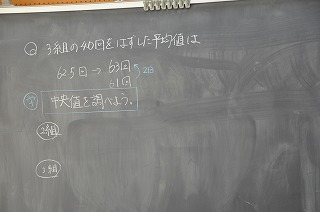 Q 3組の40回をはずした平均値は
62.5回→63回
61回 2回
学 中央値を調べよう。
2組
3組